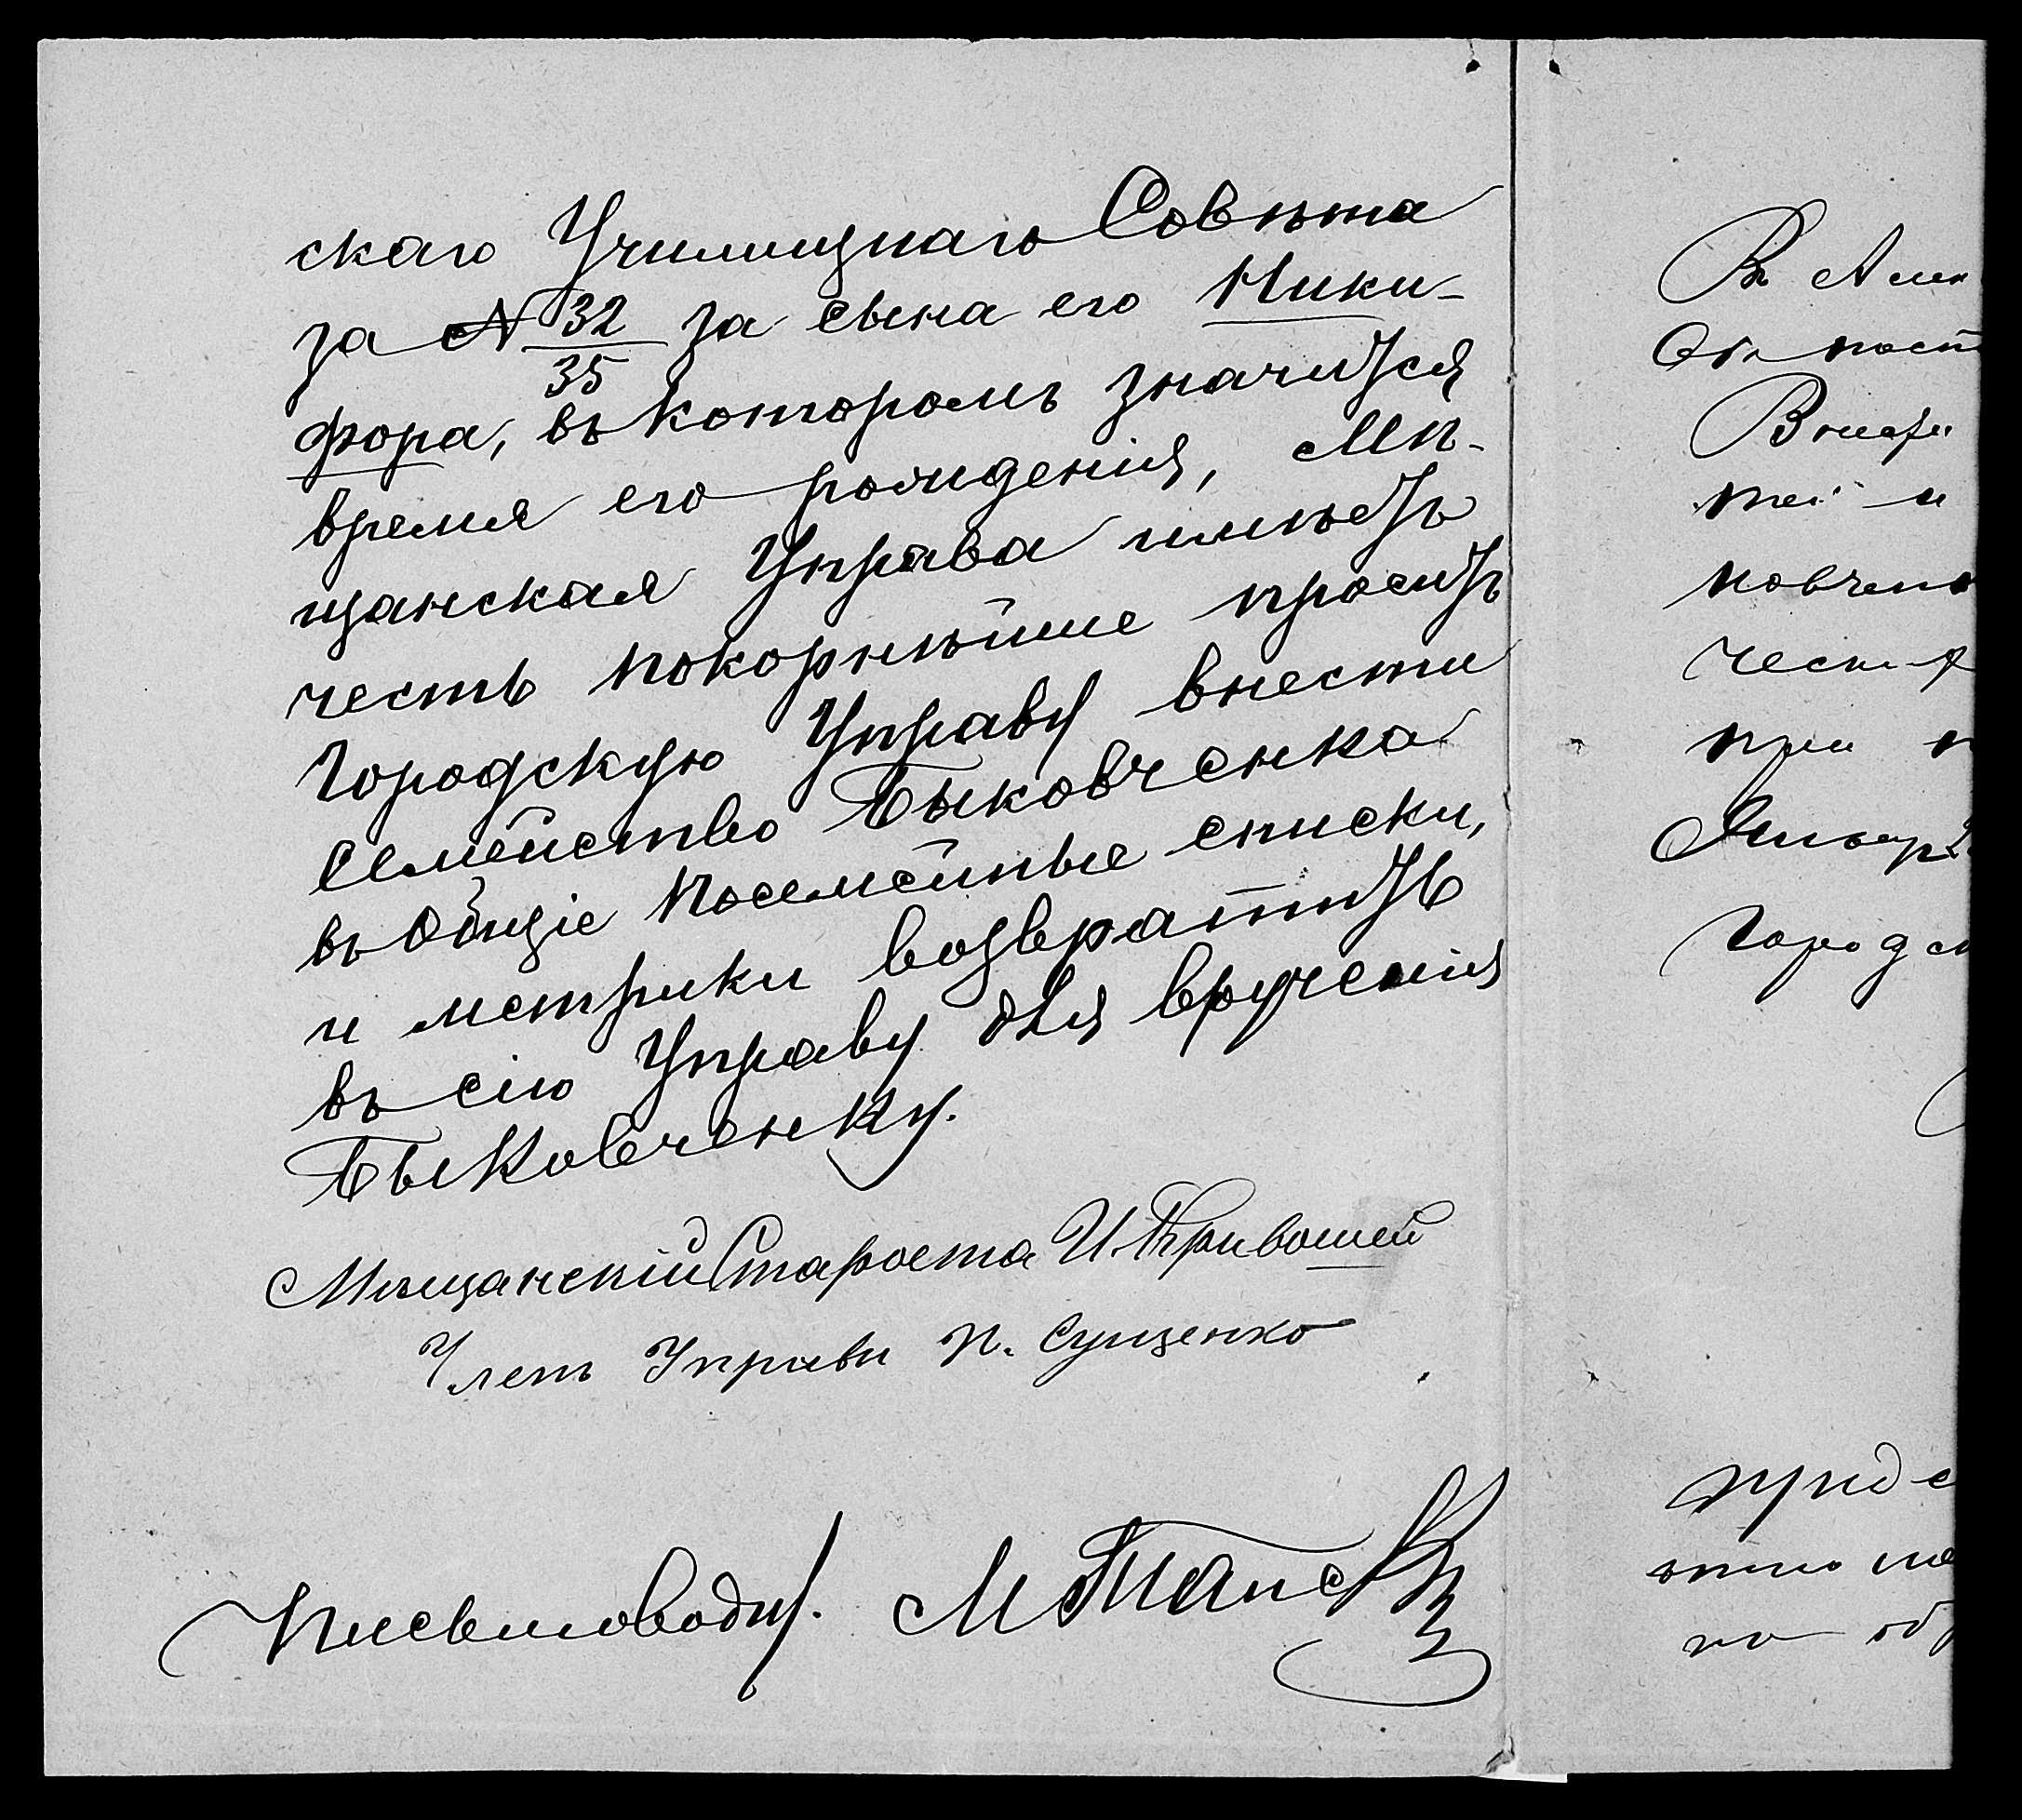 скаго Училищнаго Совѣта
за № 32/35 за сына его Ники-
фора, въ которомъ значится
время его рожденія, Мѣ-
щанская Управа имѣетъ
честь покорнѣйше просить
Городскую Управу внести
семейство Быковченка
въ общіе посемейные списки,
и метрики возвратить
въ сію Управу для врученія
Быковченку.
Мѣщанскій Староста И. Кривошей
Членъ Управы П. Сущенко
Письмоводи. М
Въ
тей и
при
Январ
Город
предс
но об